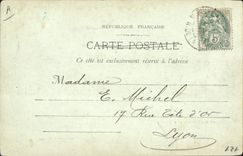 A
RÉPUBLIQUE FRANÇAISE
CARTE POSTALE
Ce côté est exclusivement réservé à l'adresse
Madame
E. Michel
17 Rue Tête d'Or
Lyon